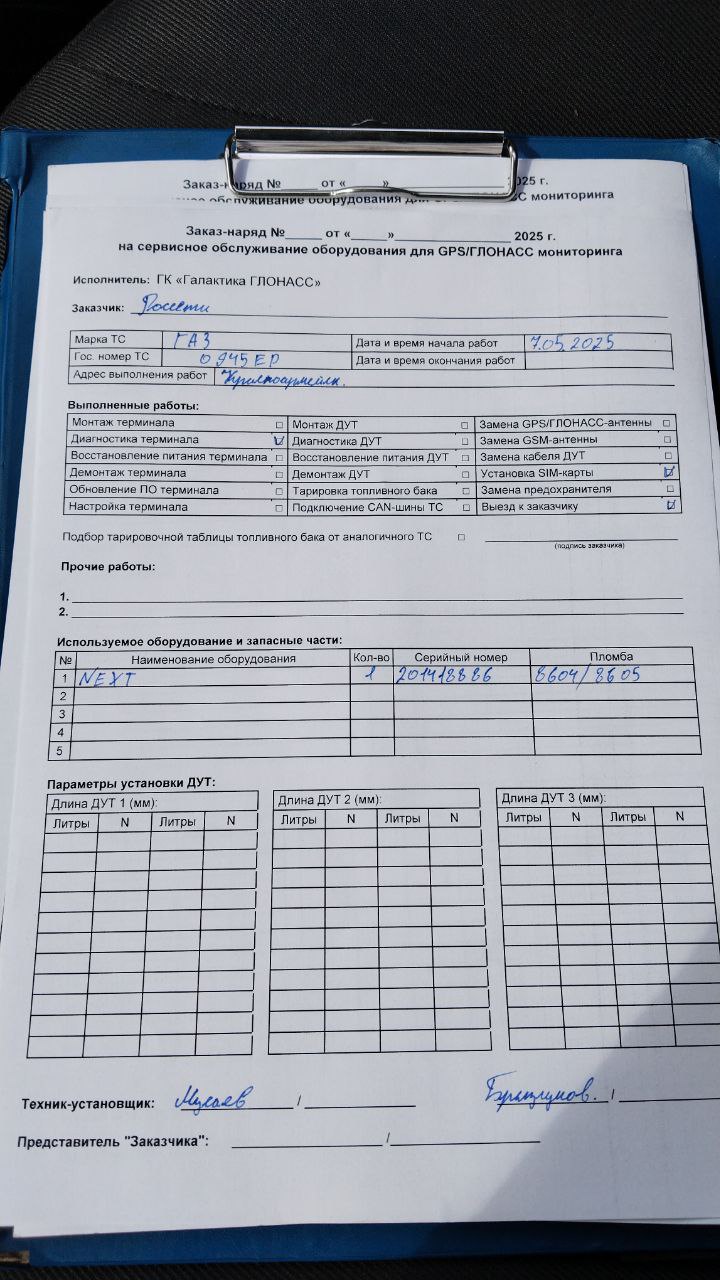 Заказ-наряд № от « » 2025 г.
на сервисное обслуживание оборудования для GPS/ГЛОНАСС мониторинга
Заказ-наряд №______ от «_____»__________________ 2025 г.
на сервисное обслуживание оборудования для GPS/ГЛОНАСС мониторинга
Исполнитель: ГК «Галактика ГЛОНАСС»
Заказчик: Россети
Марка ТС ГАЗ Дата и время начала работ 7.05.2025
Гос. номер ТС О945ЕР Дата и время окончания работ
Адрес выполнения работ
Выполненные работы:
Монтаж терминала □ Монтаж ДУТ □ Замена GPS/ГЛОНАСС-антенны □
Диагностика терминала ☑ Диагностика ДУТ □ Замена GSM-антенны □
Восстановление питания терминала □ Восстановление питания ДУТ □ Замена кабеля ДУТ □
Демонтаж терминала □ Демонтаж ДУТ □ Установка SIM-карты ☑
Обновление ПО терминала □ Тарировка топливного бака □ Замена предохранителя □
Настройка терминала □ Подключение CAN-шины ТС □ Выезд к заказчику ☑
Подбор тарировочной таблицы топливного бака от аналогичного ТС □
(подпись заказчика)
Прочие работы:
1.
2.
Используемое оборудование и запасные части:
№ Наименование оборудования Кол-во Серийный номер Пломба
1 NEXT 1 201418886 8604/8605
2
3
4
5
Параметры установки ДУТ:
Длина ДУТ 1 (мм): Длина ДУТ 2 (мм): Длина ДУТ 3 (мм):
Литры N Литры N Литры N Литры N Литры N Литры N
Техник-установщик: Мусаев /
Представитель "Заказчика": /